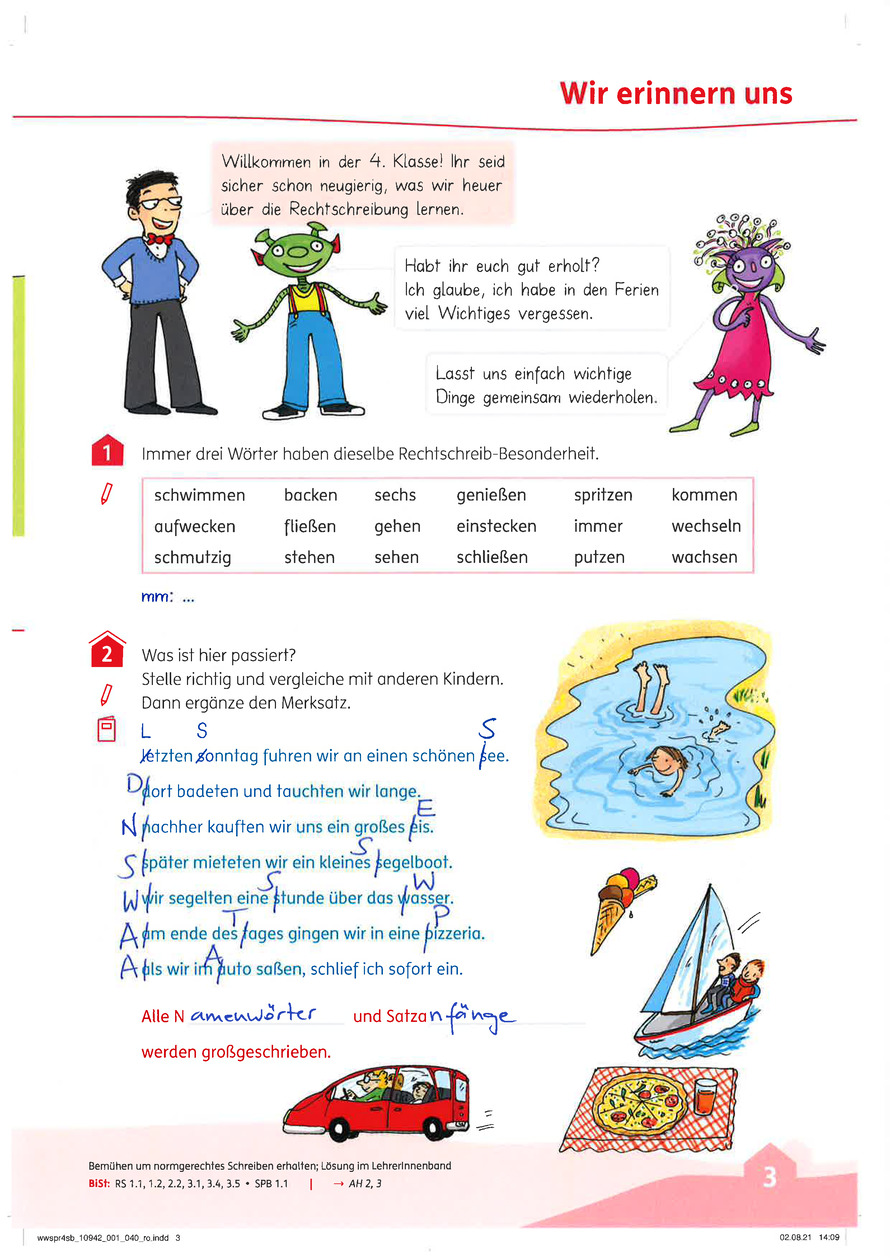 Wir erinnern uns
Willkommen in der 4. Klasse! Ihr seid
sicher schon neugierig, was wir heuer
über die Rechtschreibung lernen.
Habt ihr euch gut erholt?
Ich glaube, ich habe in den Ferien
viel Wichtiges vergessen.
Lasst uns einfach wichtige
Dinge gemeinsam wiederholen.
1 Immer drei Wörter haben dieselbe Rechtschreib-Besonderheit.
schwimmen backen sechs genießen spritzen kommen
aufwecken fließen gehen einstecken immer wechseln
schmutzig stehen sehen schließen putzen wachsen
mm: ...
2 Was ist hier passiert?
Stelle richtig und vergleiche mit anderen Kindern.
Dann ergänze den Merksatz.
L S S
letzten sonntag fuhren wir an einen schönen see.
D dort badeten und tauchten wir lange.
E
N nachher kauften wir uns ein großes eis.
S
S später mieteten wir ein kleines segelboot.
S W
W wir segelten eine stunde über das wasser.
T P
A am ende des tages gingen wir in eine pizzeria.
A
A als wir im auto saßen, schlief ich sofort ein.
Alle N amenwörter und Satza nfänge
werden großgeschrieben.
Bemühen um normgerechtes Schreiben erhalten; Lösung im LehrerInnenband
BiSt: RS 1.1, 1.2, 2.2, 3.1, 3.4, 3.5 • SPB 1.1 | → AH 2, 3
3
wwspr4sb_10942_001_040_ro.indd 3 02.08.21 14:09